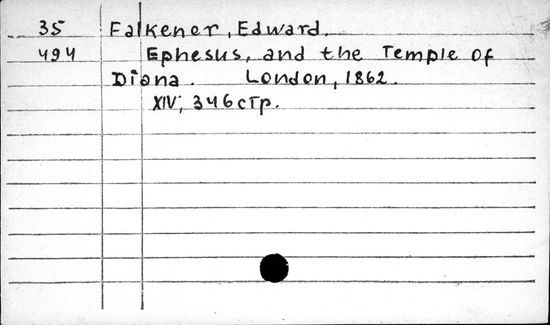 35 Falkener, Edward.
494 Ephesus, and the Temple of
Diana. London, 1862.
XIV, 346 стр.